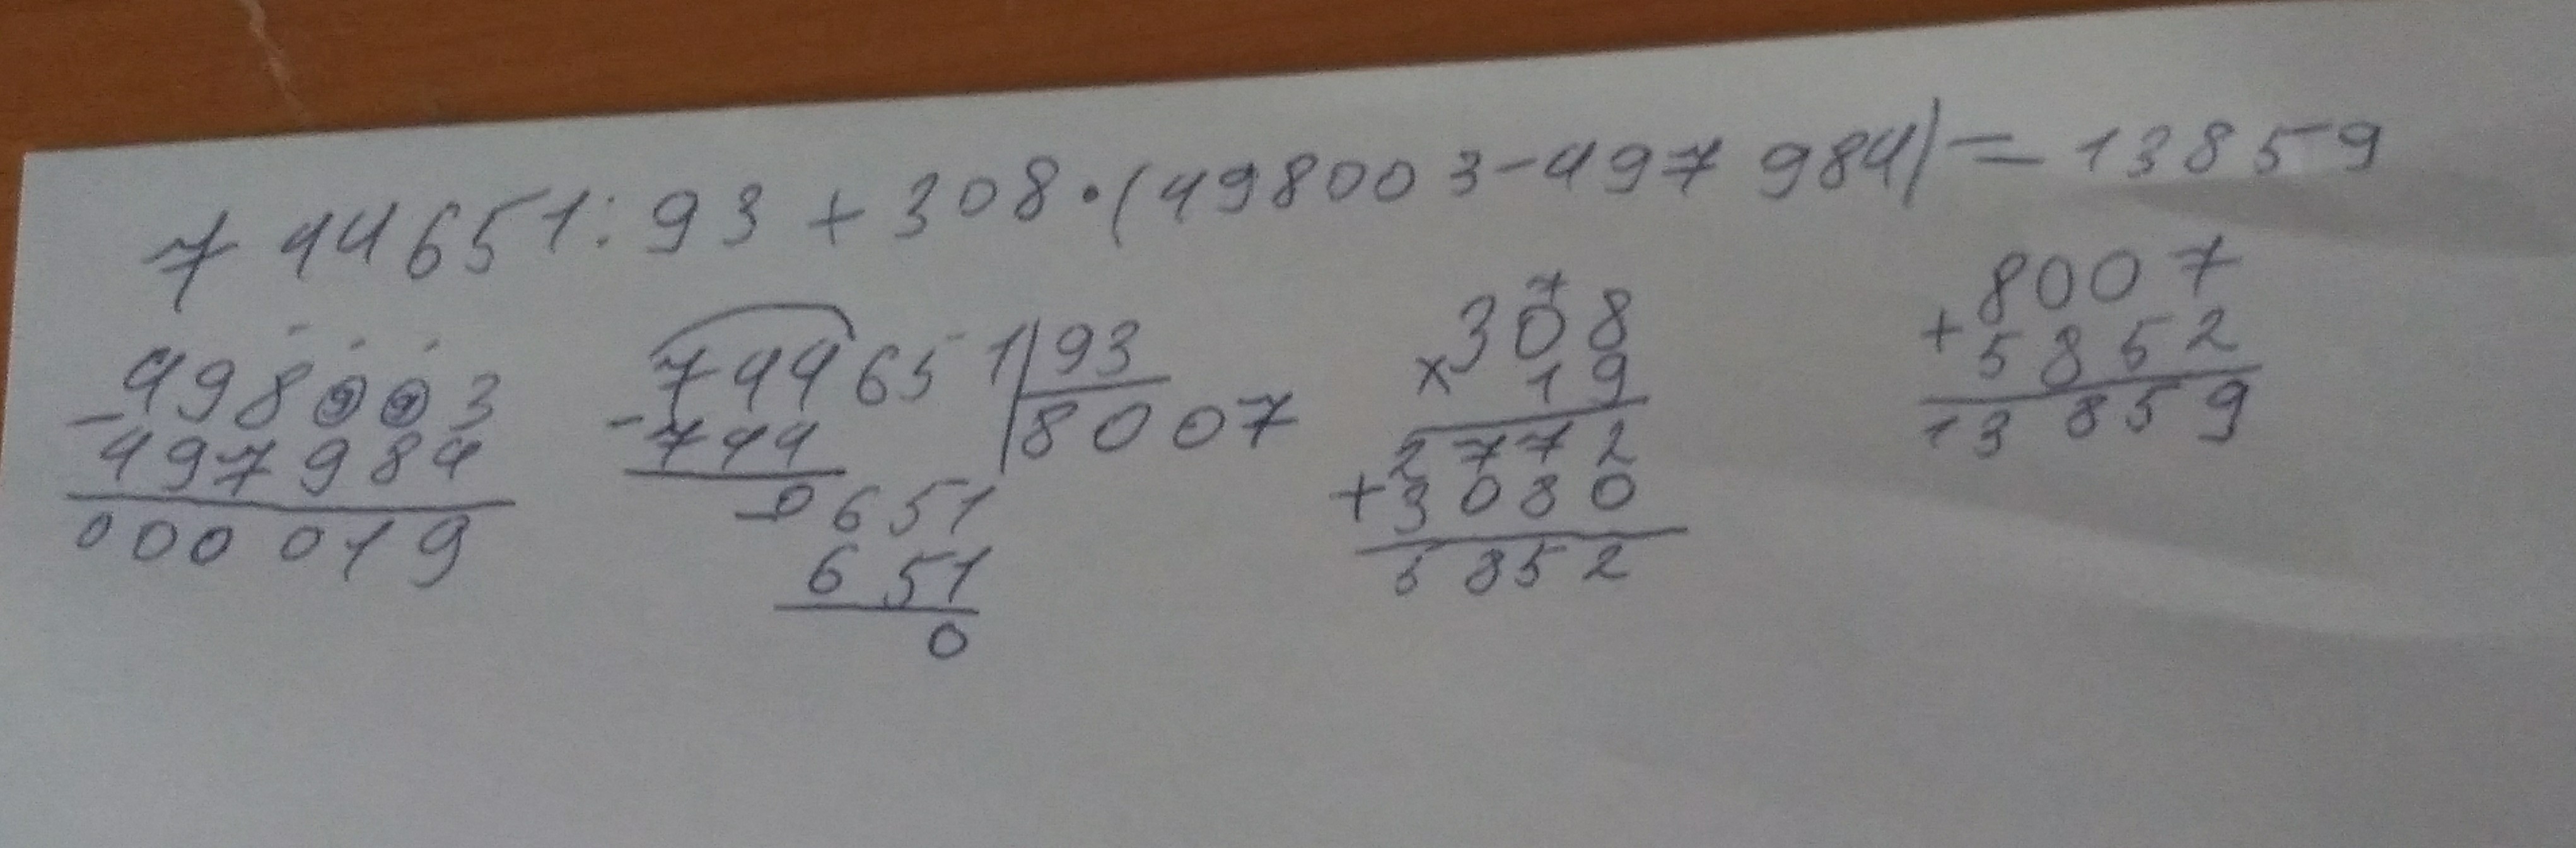 744651:93+308·(498003-497984)=13859
498003
-497984
000019
744651|93
-744 8007
0651
651
0
7
308
×19
2772
+3080
5852
8007
+5852
13859